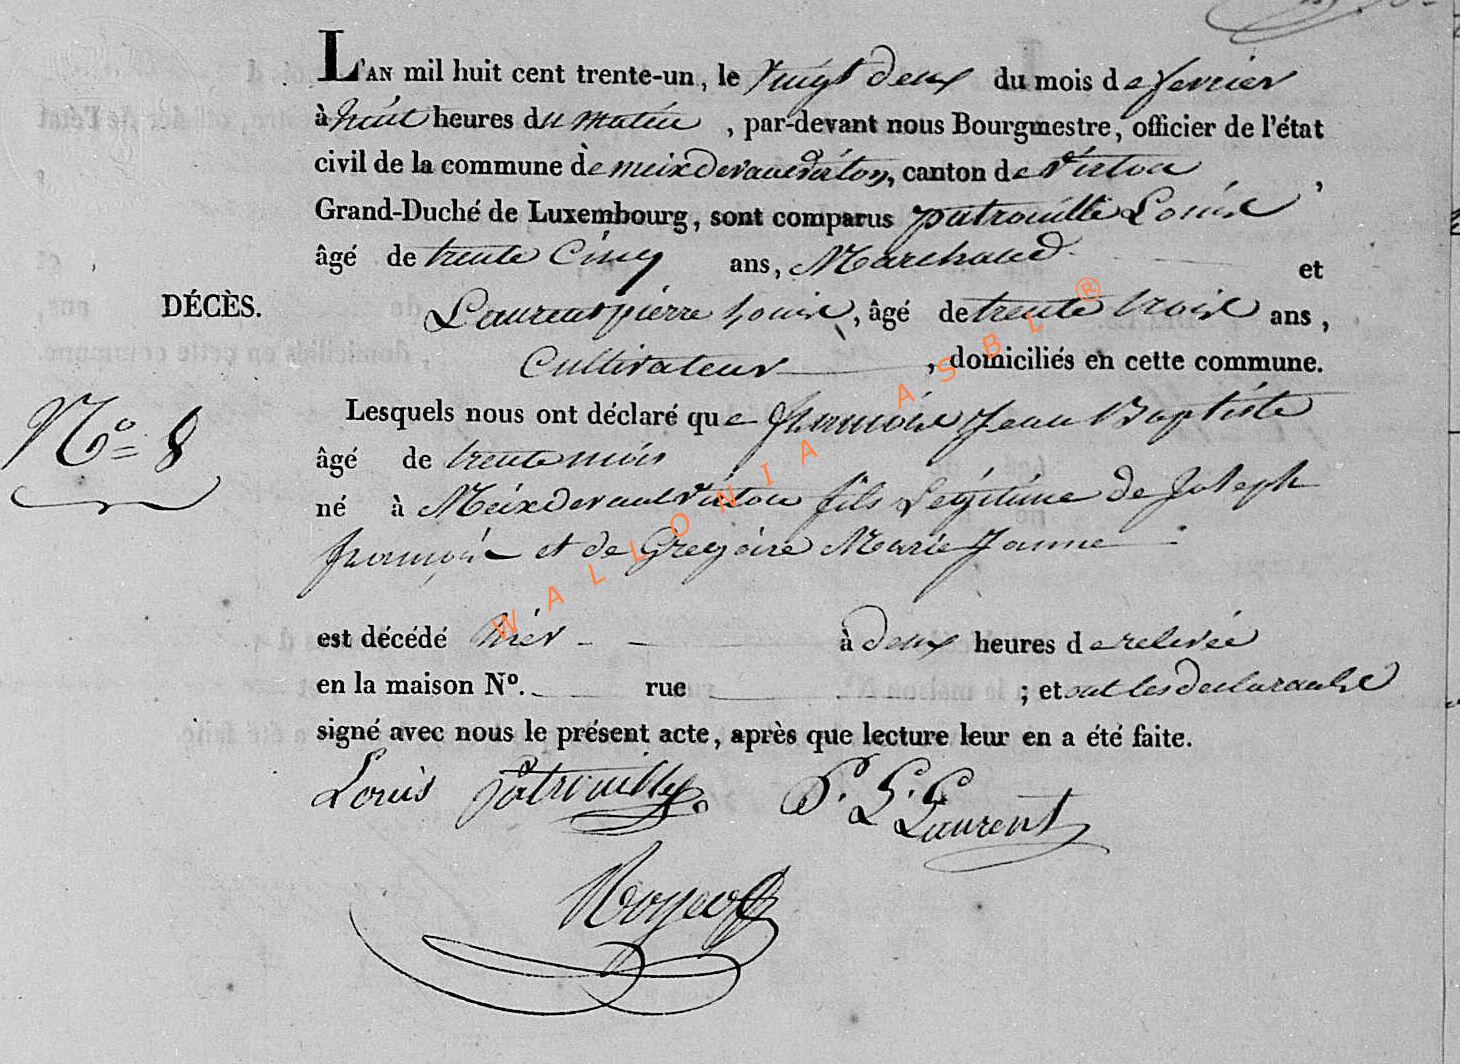 L'AN mil huit cent trente-un, le vingt deux du mois de fevrier
à huit heures du matin , par-devant nous Bourgmestre, officier de l'état
civil de la commune de meix devant virton, canton de virton ,
Grand-Duché de Luxembourg, sont comparus patrouille Louis
âgé de trente Cinq ans, Marchand et
DÉCÈS.
Laurent pierre Louis, âgé de trente trois ans ,
Cultivateur , domiciliés en cette commune.
Lesquels nous ont déclaré que françois Jean Baptiste
N° 8
âgé de trente mois
né à Meix devant virton fils Legitime de Joseph
françois et de Gregoire Marie Jeanne
est décédé hier à deux heures de relevée
en la maison N°. rue ; et ont les declarants
signé avec nous le présent acte, après que lecture leur en a été faite.
Louis patrouille P. L. Laurent
WALLONIA ASBL ®